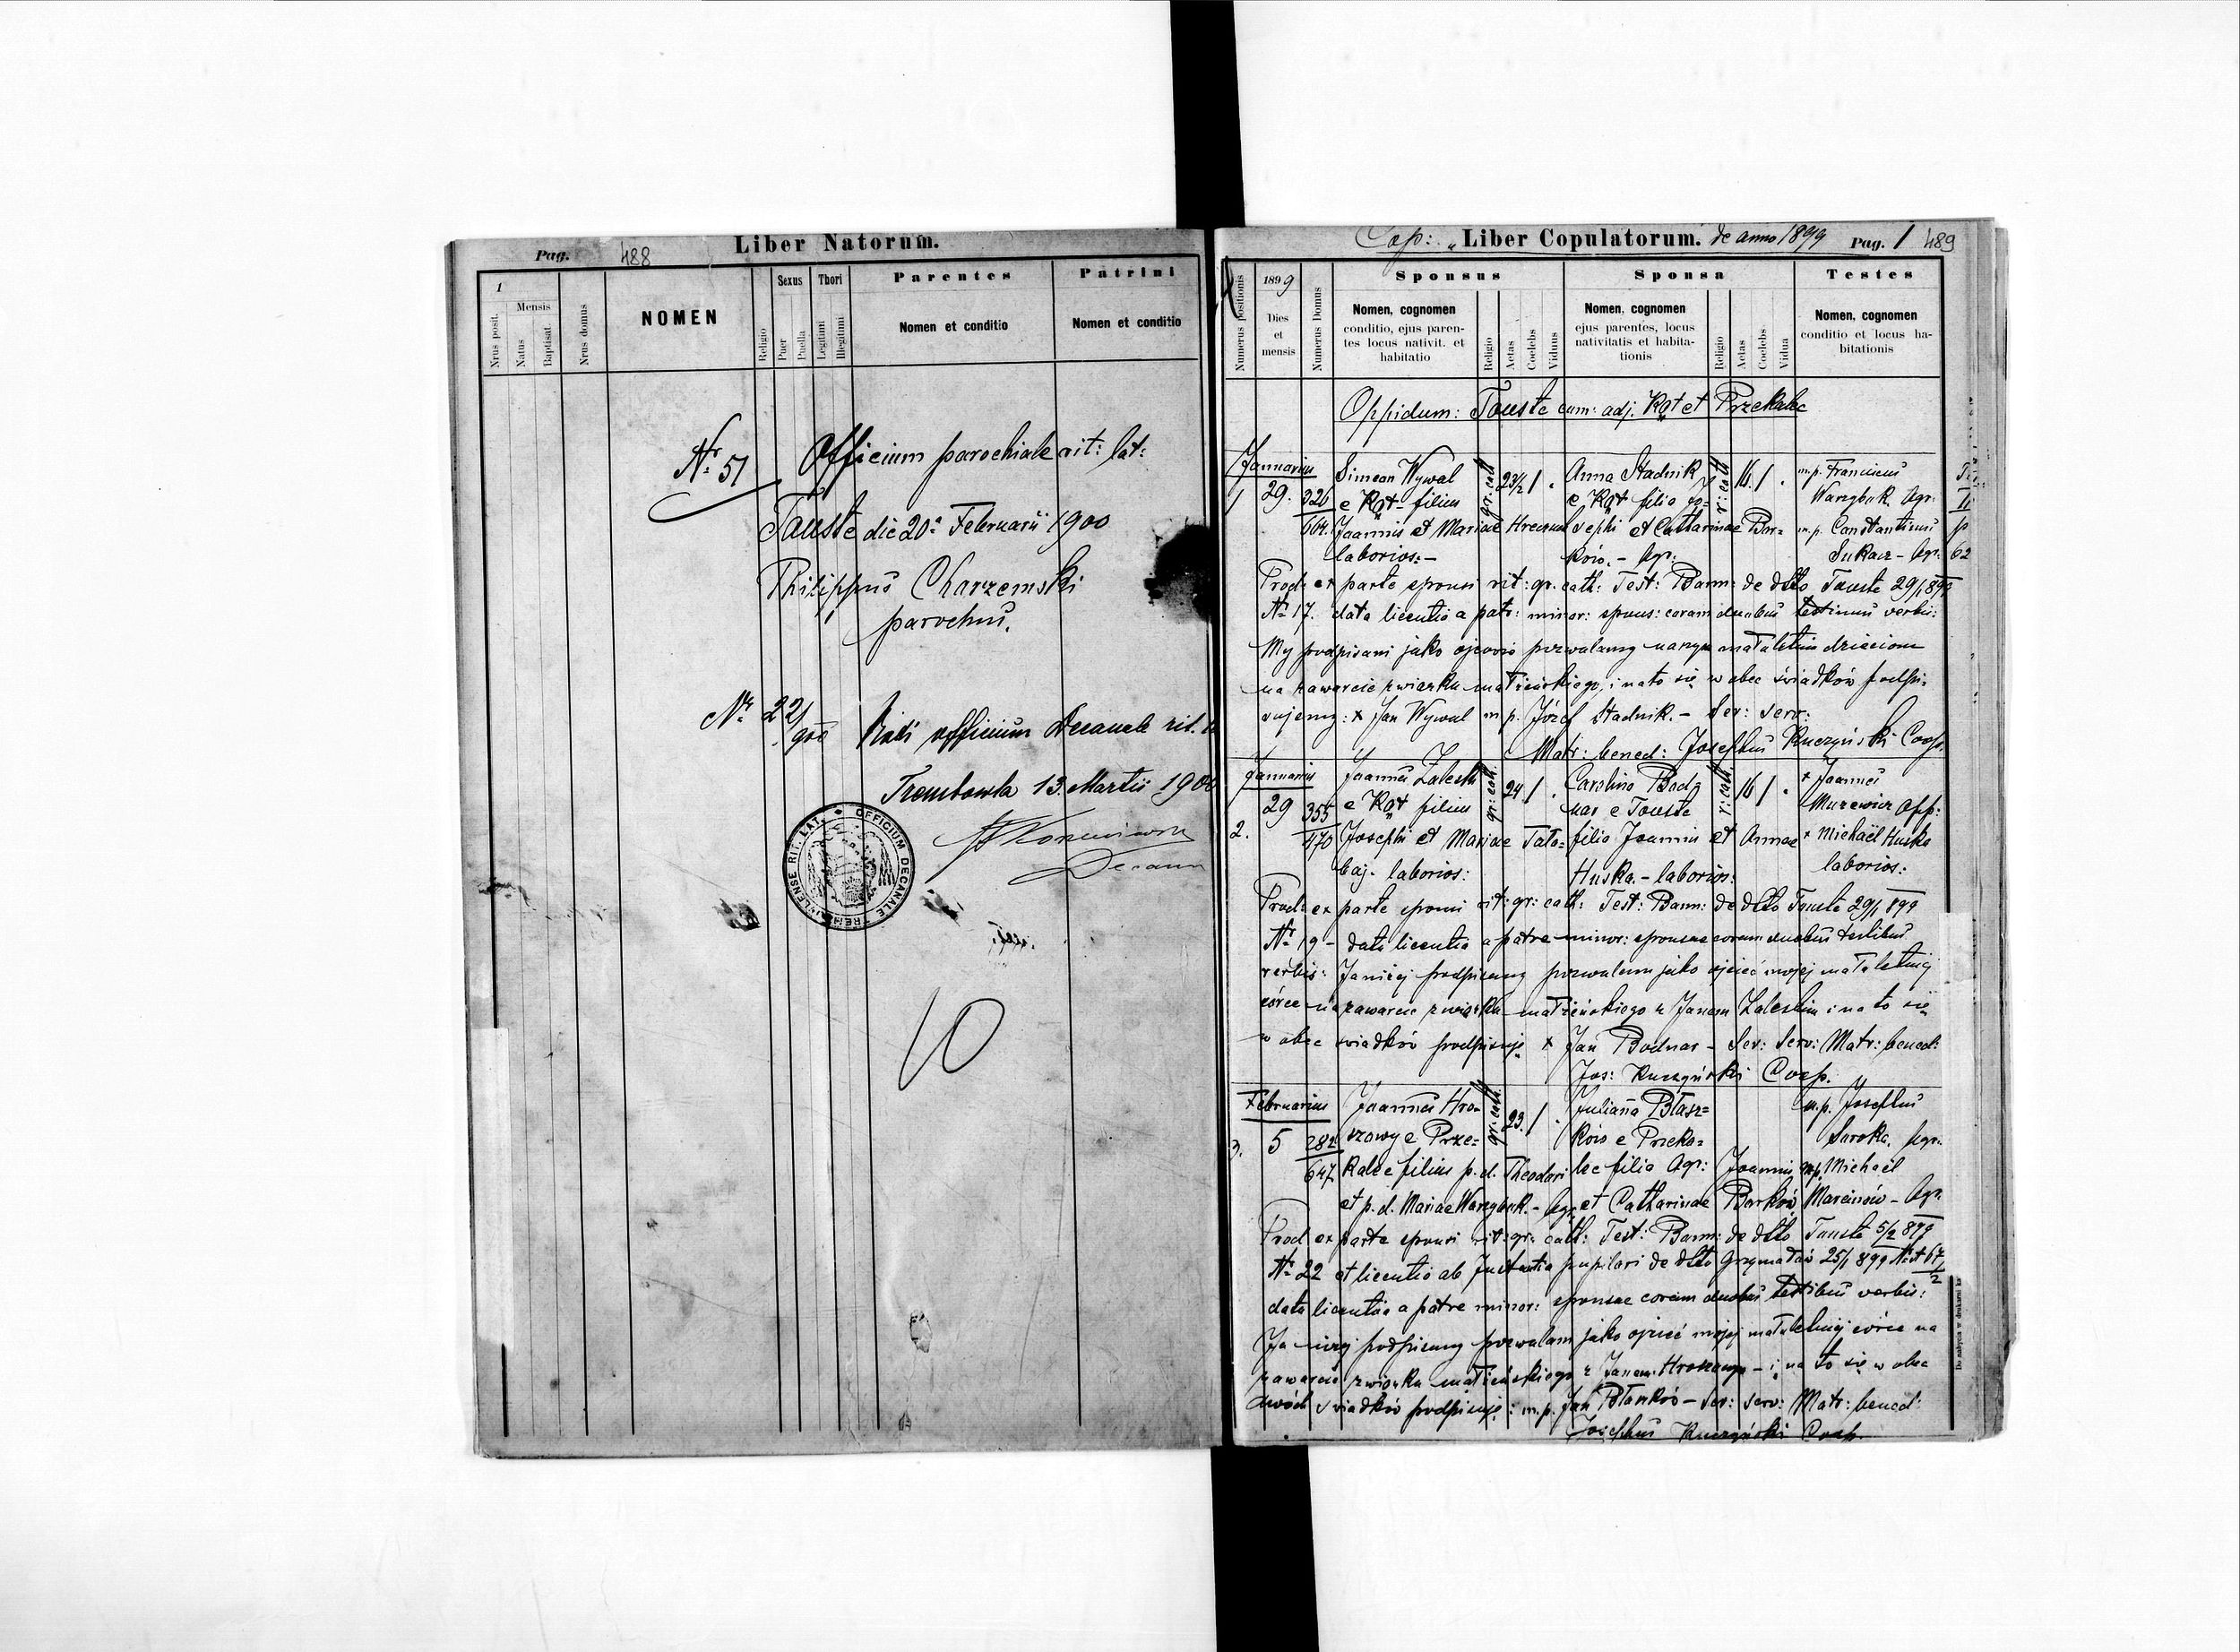 Pag. 488 Liber Natorum.
1
Nrus posit.
Mensis
Natus
Baptisat.
Nrus domus
NOMEN
Religio
Sexus
Puer
Puella
Thori
Legitimi
Illegitimi
Parentes
Nomen et conditio
Patrini
Nomen et conditio
Nr. 51 Officium parochiale rit: lat:
Touste die 20. Februarii 1900
Philippus Charzemski
parochus.
Nr. 22/900 Vidi officium Decanale rit. l
Trembowla 13. Martii 1900
OFFICIUM DECANALE TREMBOWLENSE RIT. LAT.
10
Cop: "Liber Copulatorum. de anno 1899 Pag. 1 489
Numerus positionis
1899
Dies
et
mensis
Numerus Domus
Sponsus
Nomen, cognomen
conditio, ejus paren-
tes locus nativit. et
habitatio
Religio
Aetas
Coelebs
Viduus
Sponsa
Nomen, cognomen
ejus parentes, locus
nativitatis et habita-
tionis
Religio
Aetas
Coelebs
Vidua
Testes
Nomen, cognomen
conditio et locus ha-
bitationis
Oppidum: Touste cum: adj. Kąt et Przekalec
Januarius
1 29. 326
664.
Simeon Wywal
e Kąt – filius
Joannis et Mariae
laborios: –
gr: cath
23 1/2 /
Anna Stadnik
e Kąt filia Jo=
sephi et Catharinae Bor=
ków. – Agr.
r: cath
16. / .
m.p. Franciscus
Warzybok Agr.
m.p. Constantinus
Sukacz – Agr.
62
Prod: ex parte sponsi rit: gr. cath: Test: Bann: de dtto Touste 29/1 899
Nr. 17. data licentia a patr: minor: spons: coram duobus testimus verbis:
My podpisani jako ojcowie pozwalamy naszym małaletnim dzieciom
na zawarcie związku małżeńskiego, i na to się w obec świadków podpi-
sujemy: x Jan Wywal m.p. Józef Stadnik. – Ser: serv:
Matr: bened: Josephus Kuczyński Coop.
Januarius
2. 29 355
470
Joannes Zaleski
e Kąt filius
Josephi et Mariae Tata=
baj. laborios:
gr: cath.
24 / .
Carolina Bod=
nar e Touste
filia Joannis et Annae
Huska. – laborios:
r: cath.
16 / .
+ Joannes
Mazewicz Opp:
+ Michaël Huska
laborios:
Prod: ex parte sponsi rit: gr: cath: Test: Bann: de dtto Touste 29/1 899
Nr. 19 – data licentia a patre minor: sponsae coram duobus testibus
verbis: Ja niżej podpisany pozwalam jako ojciec mojej małaletniej
córce na zawarcie związku małżeńskiego z Janem Zaleskim i na to się
w obec świadków podpisuję x Jan Bodnar – Ser: serv: Matr: bened:
Jos: Kuczyński Coop.
Februarius
3. 5 282
647
Joannes Hro=
szowy e Prze=
kalec filius p. d. Theodori
et p. d. Mariae Warzybok. – Agr.
gr: cath.
23. / .
Juliana Błasz=
ków e Przeka=
lec filia Agr: Joannis
et Catharinae Borków
m.p. Josephus
Saroka. Agr.
m.p. Michaël
Marcinów – Agr.
Prod ex parte sponsi rit: gr: cath: Test: Bann: de dtto Touste 5/2 899
Nr. 22 et licentia ab Instantia pupilari de dtto Grzymałów 25/1 899
data licentia a patre minor: sponsae coram duobus testibus verbis:
Ja niżej podpisany pozwalam jako ojciec mojej małaletniej córce na
zawarcie związku małżeńskiego z Janem Hroszowym – i na to się w obec
dwóch świadków podpisuję: m.p. Jan Błaszków – Ser: serv: Matr: bened:
Josephus Kuczyński Coop.